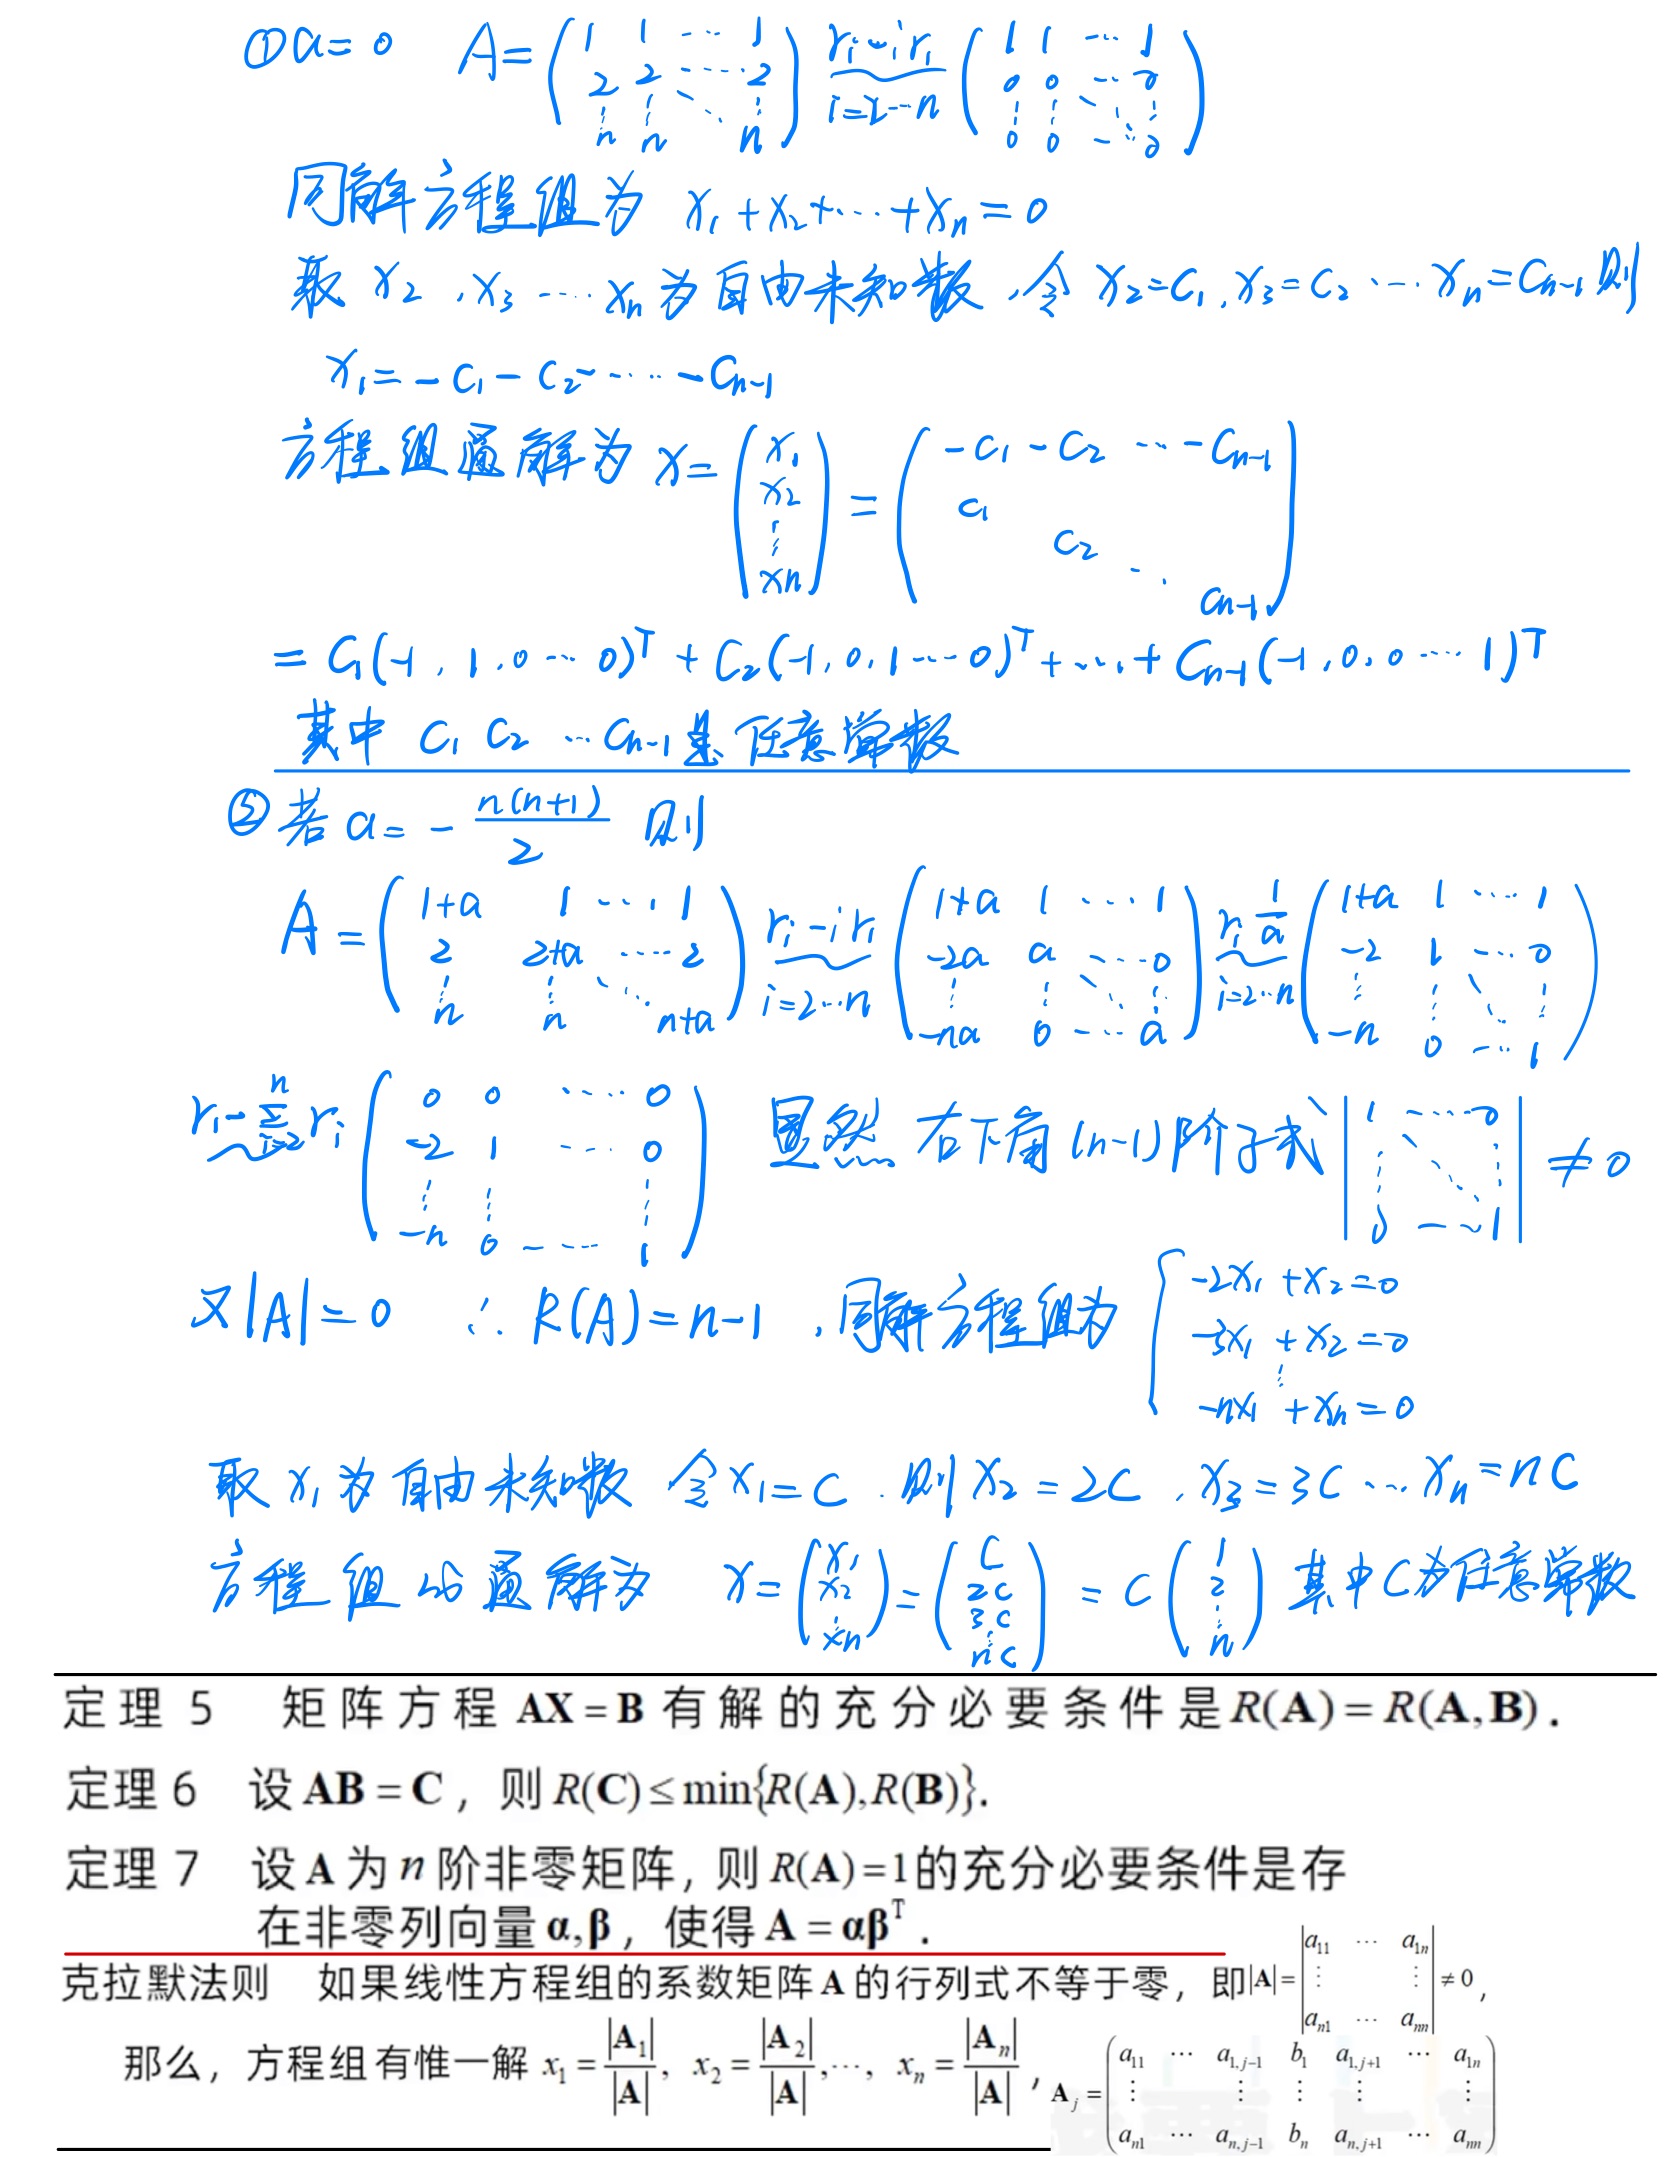 ① a=0 A= ( 1 1 ⋯ 1 ; 2 2 ⋯ 2 ; ⋮ ⋮ ⋱ ⋮ ; n n ⋯ n ) r_i - i r_1 (i=2⋯n) ( 1 1 ⋯ 1 ; 0 0 ⋯ 0 ; ⋮ ⋮ ⋱ ⋮ ; 0 0 ⋯ 0 )
同解方程组为 x₁+x₂+⋯+xₙ=0
取 x₂,x₃⋯xₙ为自由未知数,令 x₂=c₁,x₃=c₂⋯xₙ=cₙ₋₁ 则
x₁=-c₁-c₂-⋯-cₙ₋₁
方程组通解为 x= ( x₁ ; x₂ ; ⋮ ; xₙ ) = ( -c₁-c₂ ⋯ -cₙ₋₁ ; c₁ ; c₂ ; ⋱ ; cₙ₋₁ )
= C₁(-1,1,0⋯0)ᵀ + C₂(-1,0,1⋯0)ᵀ +⋯+ Cₙ₋₁(-1,0,0⋯1)ᵀ
其中 c₁ c₂ ⋯cₙ₋₁是任意常数
② 若 a= - n(n+1)/2 则
A = ( 1+a 1 ⋯ 1 ; 2 2+a ⋯ 2 ; ⋮ ⋮ ⋱ ; n n n+a ) r_i - i r_1 (i=2⋯n) ( 1+a 1 ⋯ 1 ; -2a a ⋯ 0 ; ⋮ ⋮ ⋱ ⋮ ; -na 0 ⋯ a ) r_i 1/a (i=2⋯n) ( 1+a 1 ⋯ 1 ; -2 1 ⋯ 0 ; ⋮ ⋮ ⋱ ⋮ ; -n 0 ⋯ 1 )
r₁ - Σ_{i=2}^{n} r_i ( 0 0 ⋯ 0 ; -2 1 ⋯ 0 ; ⋮ ⋮ ⋮ ; -n 0 ⋯ 1 ) 显然 右下角(n-1)阶子式 | 1 ⋯ 0 ; ⋮ ⋱ ⋮ ; 0 ⋯ 1 | ≠0
又|A|=0 ∴ R(A)=n-1 ,同解方程组为 { -2x₁+x₂=0 ; -3x₁+x₂=0 ; ⋮ ; -nx₁+xₙ=0
取 x₁为自由未知数 令x₁=C 则 x₂=2C ,x₃=3C⋯xₙ=nC
方程组的通解为 x= ( x₁ ; x₂ ; ⋮ ; xₙ ) = ( C ; 2C ; 3C ; ⋮ ; nC ) = C ( 1 ; 2 ; ⋮ ; n ) 其中C为任意常数
定理 5 矩阵方程 AX = B 有解的充分必要条件是R(A) = R(A,B).
定理 6 设 AB = C,则 R(C) ≤ min{R(A),R(B)}.
定理 7 设 A 为 n 阶非零矩阵,则 R(A)=1的充分必要条件是存
在非零列向量 α,β,使得 A = αβᵀ.
克拉默法则 如果线性方程组的系数矩阵 A 的行列式不等于零,即|A| = | a₁₁ ⋯ a₁ₙ ; ⋮ ⋮ ; aₙ₁ ⋯ aₙₙ | ≠ 0,
那么,方程组有惟一解 x₁ = |A₁|/|A|, x₂ = |A₂|/|A|,⋯, xₙ = |Aₙ|/|A|, A_j = ( a₁₁ ⋯ a_{1,j-1} b₁ a_{1,j+1} ⋯ a_{1n} ; ⋮ ⋮ ⋮ ⋮ ⋮ ; a_{n1} ⋯ a_{n,j-1} b_n a_{n,j+1} ⋯ a_{nn} )